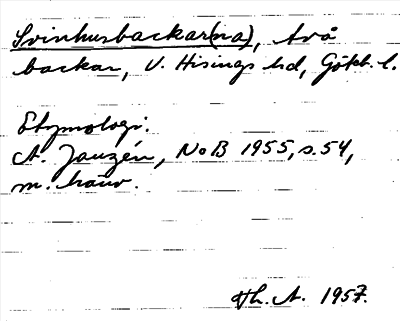 Svinhusbackar(na), två
backar, V. Hisings hd, Götb. l.
Etymologi.
A. Janzén, NoB 1955, s. 54,
m. hänv.
Th. A. 1957.